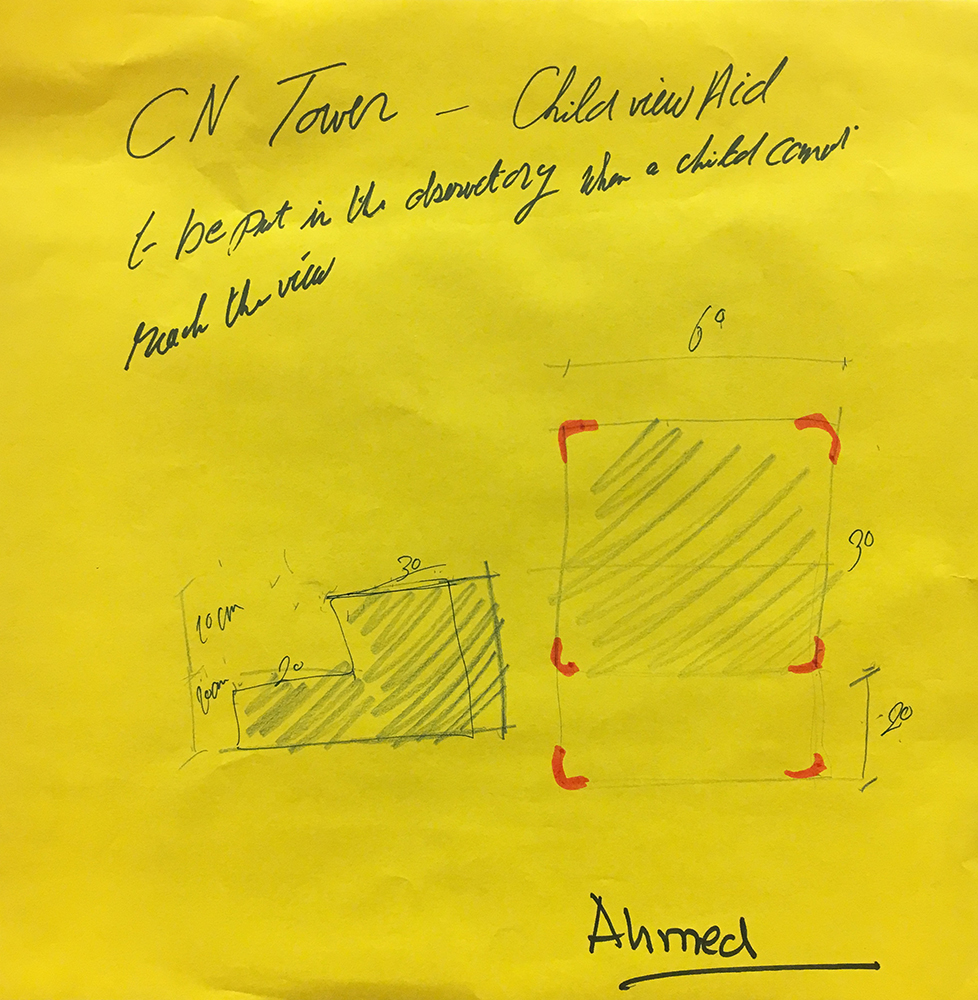 CN Tower - Child view Aid
to be put in the observatory when a child cannot
reach the view
60
30
30
10cm
20
20
Ahmed